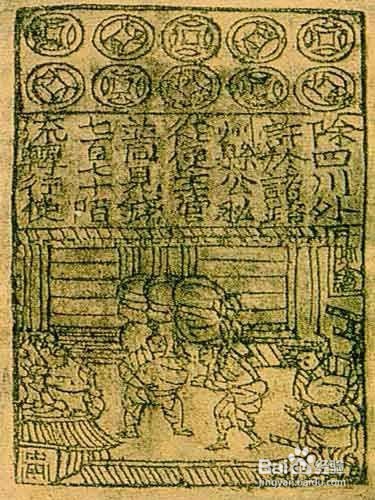 除四川外
許於諸路
州縣公私
從便主管
並同見錢
七百七十陌
流轉行使
Baidu 经验
jingyan.baidu.com